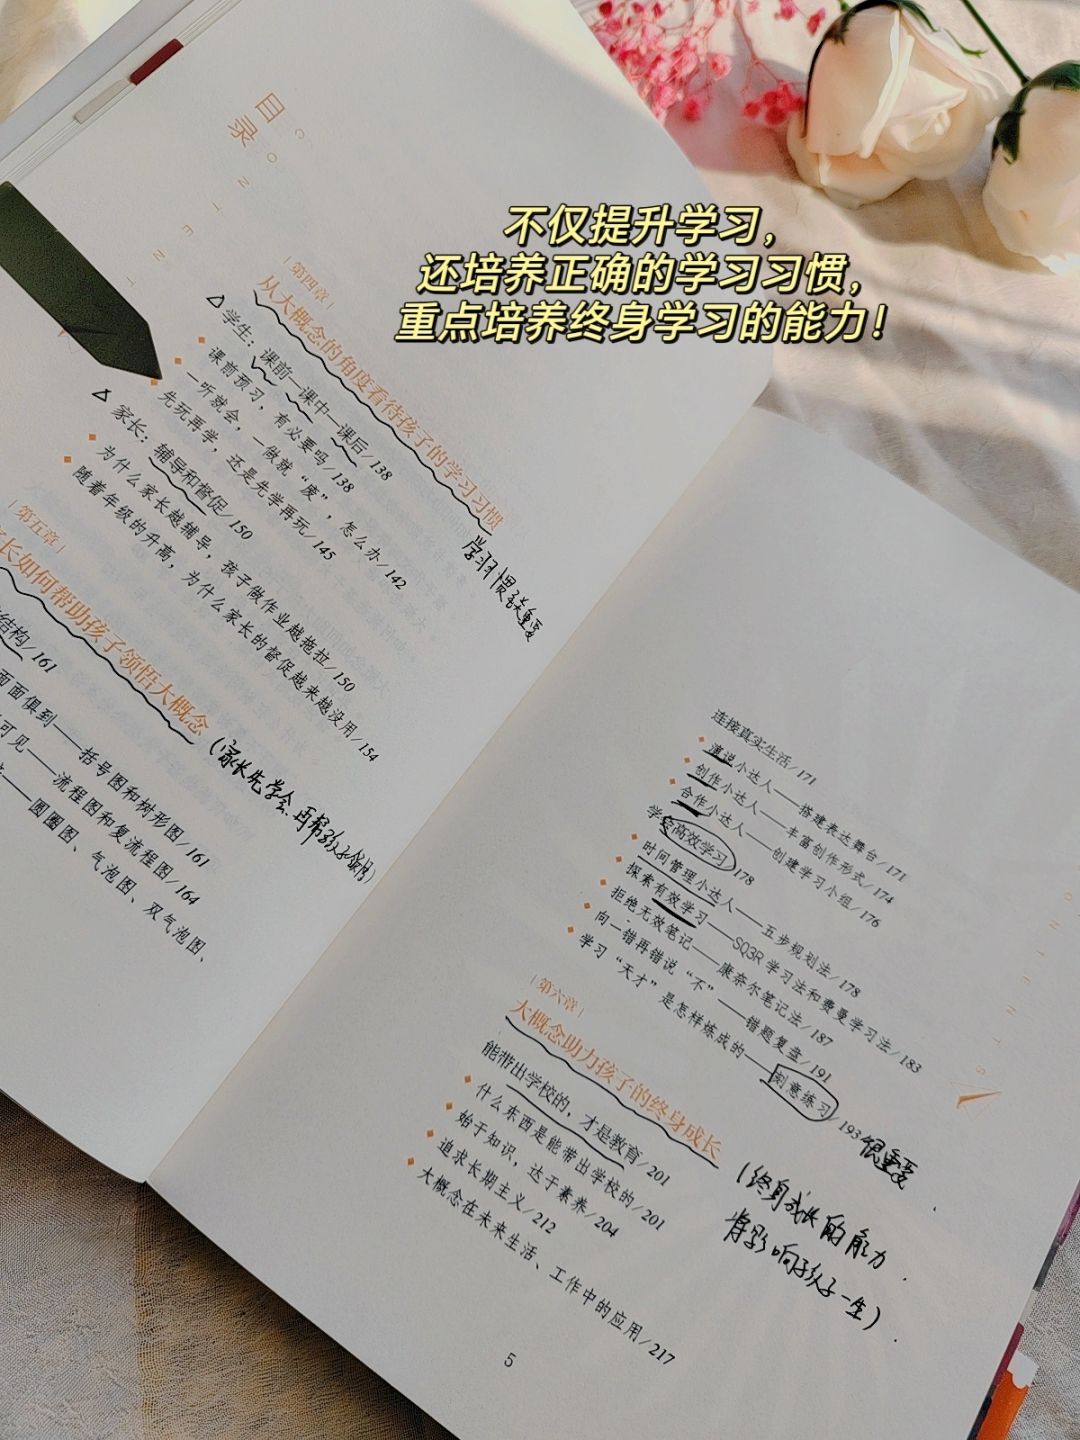 不仅提升学习，
还培养正确的学习习惯，
重点培养终身学习的能力！
目录
CONTENT
|第四章|
从大概念的角度看待孩子的学习习惯
学习习惯很重要
△学生：课前—课中—课后/138
课前预习，有必要吗/138
一听就会，一做就“废”，怎么办/142
先玩再学，还是先学再玩/145
△家长：辅导和督促/150
为什么家长越辅导，孩子做作业越拖拉/150
随着年级的升高，为什么家长的督促越来越没用/154
|第五章|
长如何帮助孩子领悟大概念
（家长先学会，再帮孩子）
结构/161
面面俱到——括号图和树形图/161
可见——流程图和复流程图/164
——圆圈图、气泡图、双气泡图、
连接真实生活/171
演说小达人——搭建表达舞台/171
创作小达人——丰富创作形式/174
合作小达人——创建学习小组/176
学会高效学习/178
时间管理小达人——五步规划法/178
探索有效学习——SQ3R学习法和费曼学习法/183
拒绝无效笔记——康奈尔笔记法/187
向一错再错说“不”——错题复盘/191
学习“天才”是怎样炼成的——刻意练习/193
很重要
|第六章|
大概念助力孩子的终身成长
（终身成长的能力
将影响孩子一生）
能带出学校的，才是教育/201
什么东西是能带出学校的/201
始于知识，达于素养/204
追求长期主义/212
大概念在未来生活、工作中的应用/217
5